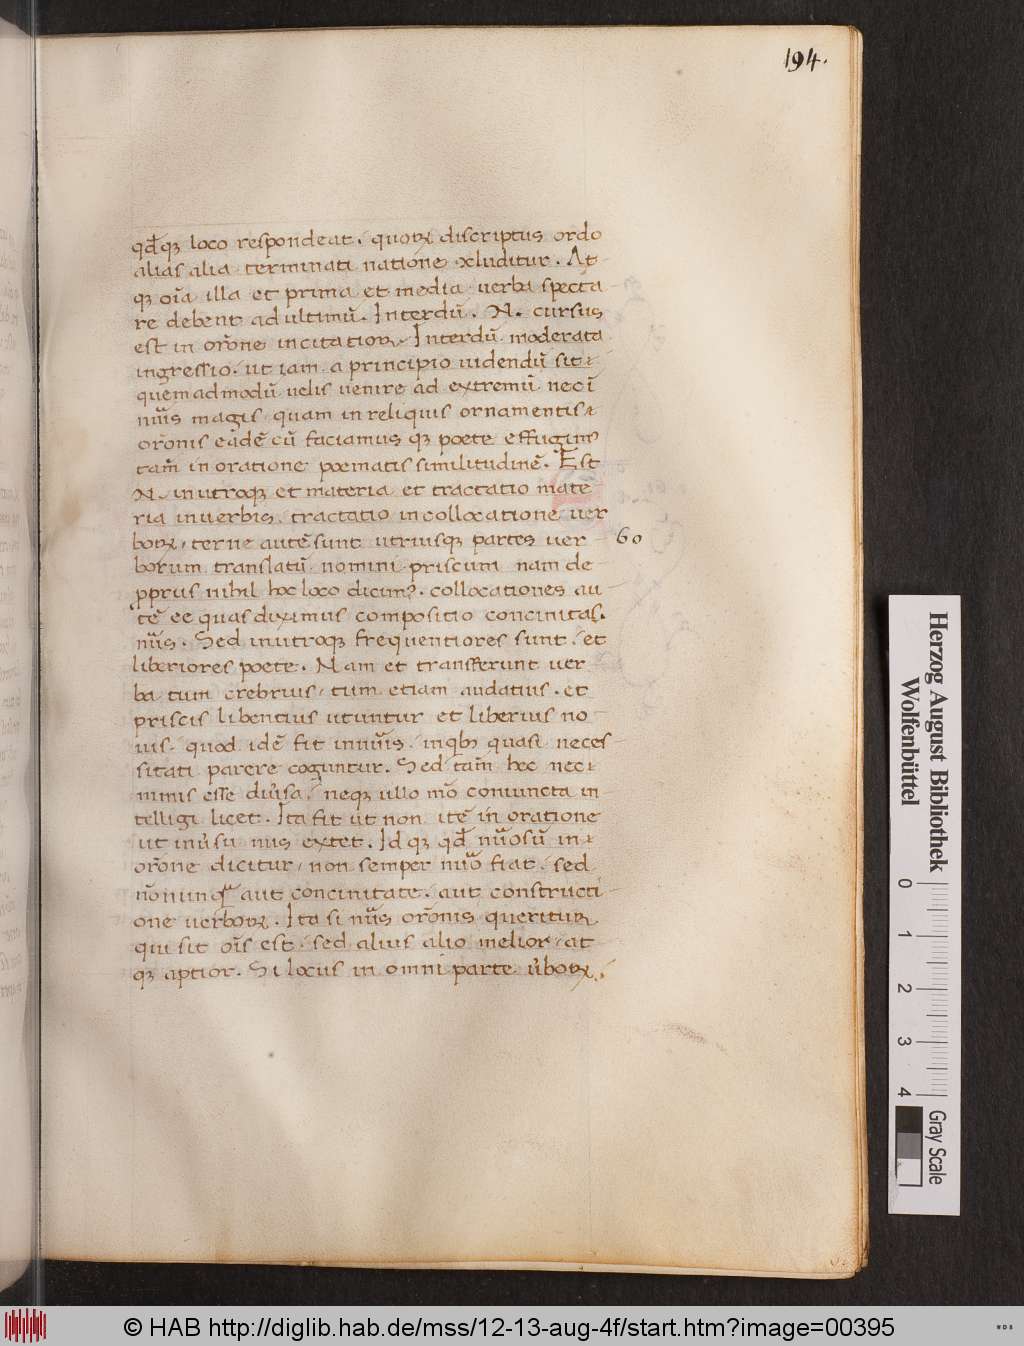 194.
qđqꝫ loco respondeat. quoꝝ discriptus ordo
alias alia terminati natione xluditur. At
qꝫ oīa illa et prima et media uerba specta
re debent ad ultimū. Interdū. N. cursus
est in orōne incitatioꝝ. Interdū moderata
ingressio. ut iam a principio uidendū sit
quemadmodū uelis uenire ad extremū nec ī
nūis magis quam in reliquis ornamentis
orōnis eadē cū faciamus qꝫ poete effugim⁹
tam̄ in oratione poematis similitudinē. Est
N. in utroqꝫ et materia et tractatio mate
ria in uerbis. tractatio in collocatione uer
boꝝ, terne autē sunt utriusqꝫ partes uer 60
borum translatū nomini priscum nam de
ꝓpriis nihil hoc loco dicim⁹. collocationes au
tē eę quas diximus compositio concinitas.
nūis. Sed in utroqꝫ frequentiores sunt. et
liberiores poete. Nam et transferunt uer
ba tum crebrius, tum etiam audatius. et
priscis libentius utuntur et liberius no
uis. quod idē fit in nūis. in qb⁹ quasi neces
sitati parere coguntur. Sed tam̄ hec nec
nimis esse diũsa. neqꝫ ullo mō coniuncta in
telligi licet. Ita fit ut non itē in oratione
ut in ũsu nūis extet. Idqꝫ qđ nūosū in
orōne dicitur, non semper nūo fiat. sed
nōnunqᷓ aut concinitate. aut constructi
one uerboꝝ. Ita si nūis orōnis queritur
qui sit oīs est. sed alius alio melior, at
qꝫ aptior. Si locus in omni parte ũboꝝ.
Herzog August Bibliothek
Wolfenbüttel
0 1 2 3 4
Gray Scale
© HAB http://diglib.hab.de/mss/12-13-aug-4f/start.htm?image=00395